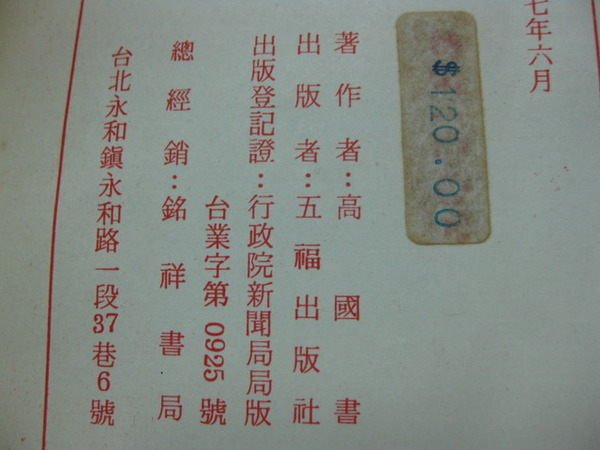 七年六月
$120.00
著作者：高國書
出版者：五福出版社
出版登記證：行政院新聞局局版
台業字第0925號
總經銷：銘祥書局
台北永和鎮永和路一段37巷6號